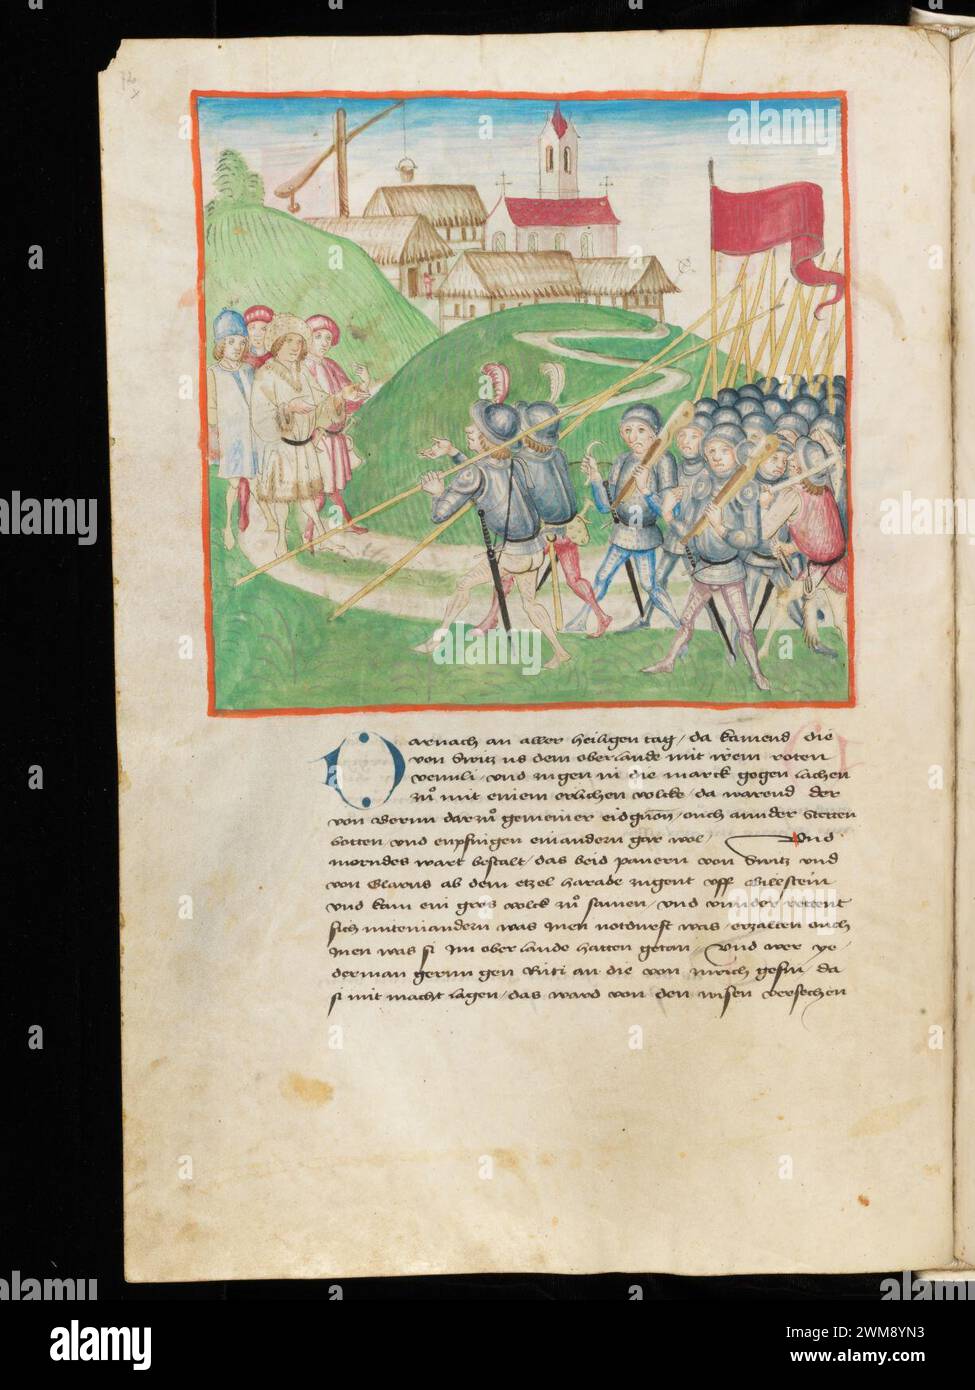 Darnach an aller heiligen tag / da kamend die
von Switz us dem oberlande mit irem roten
vennli / und zugen in die marck gegen lachen
zuͦ mit einem erlichen volcke / da warend der
von Bernn darzuͦ gemeiner eidgnon / ouch annder Stetten
botten und enpfingen einandern gar wol / Und
morndes wart bestalt / das beid panern von Switz und
von Glarus ab dem etzel harabe zugent uff
und kam ein gros volck zuͦ samen / und
sich miteinandern was Inen notdurft was / erzalten ouch
Inen was si Im oberlande hatten getan / Und wer ye/
derman gernn gen Rüti an die von zurich gesin / da
si mit macht lagen / das ward von den wisen versechen
alamy
Image ID: 2WM8YN3
www.alamy.com